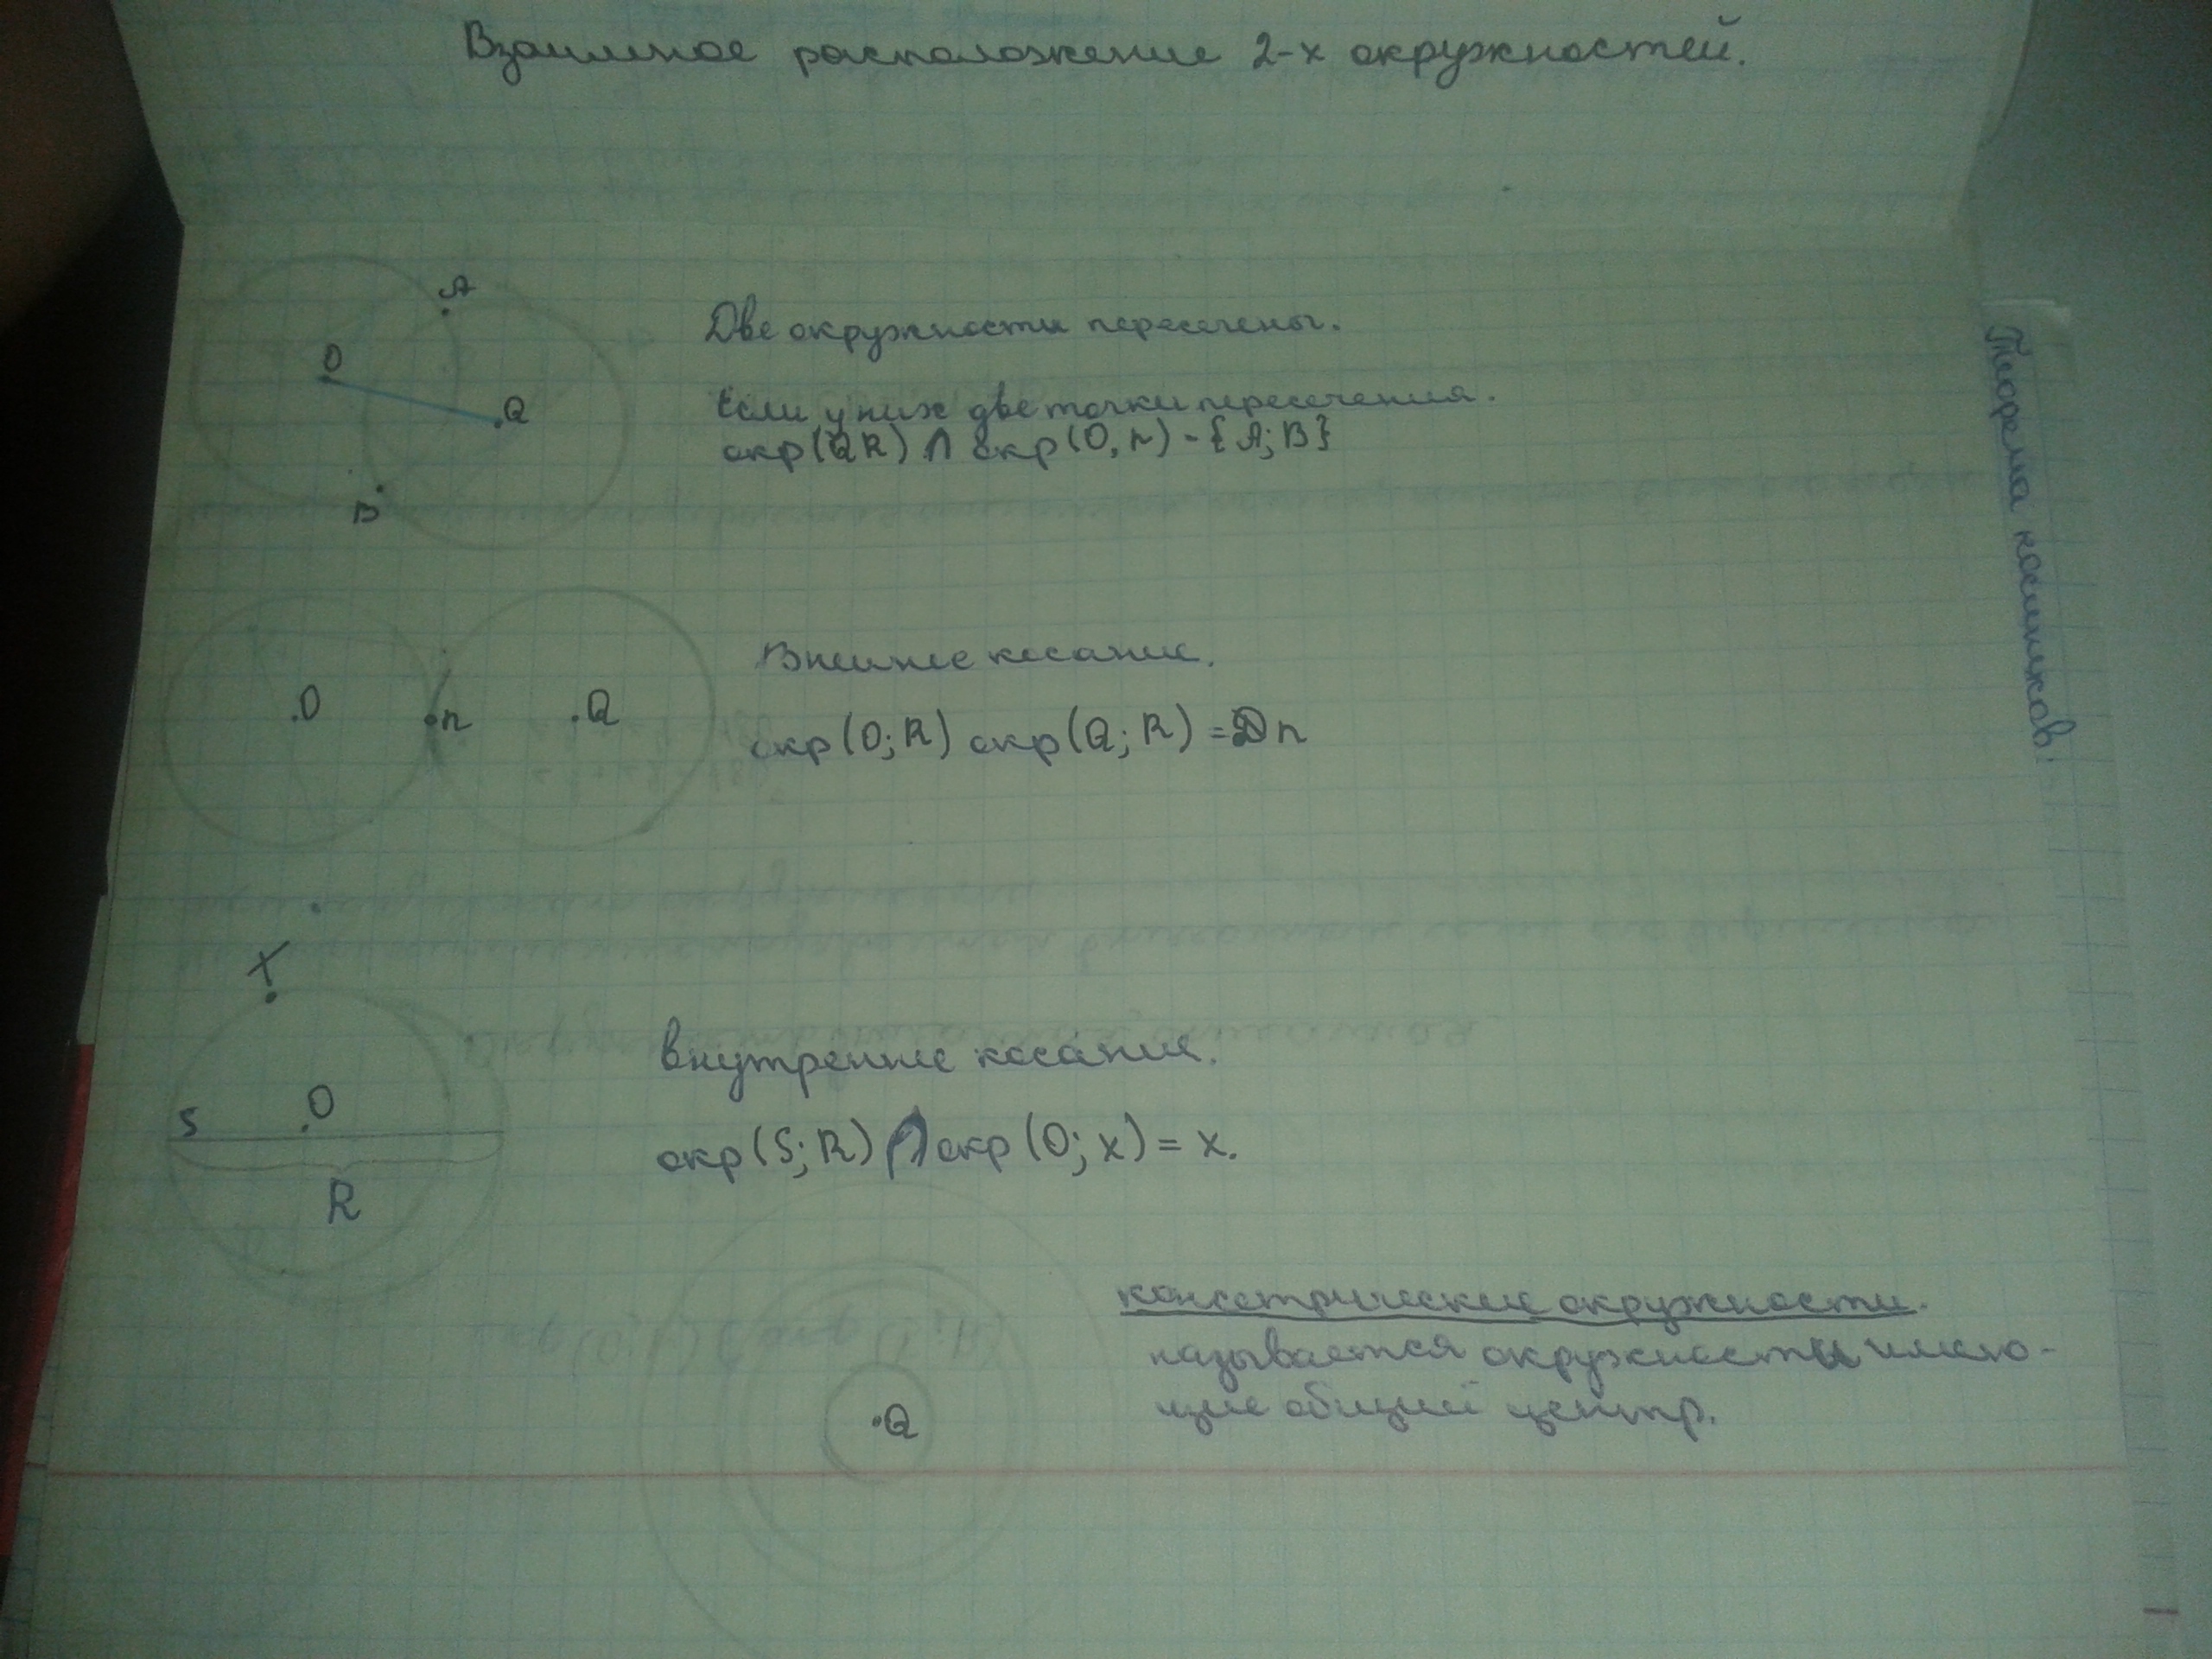 Взаимное расположение 2-х окружностей.
A
O
Q
B
Две окружности пересечены.
Если у них две точки пересечения.
окр(QR) ∩ окр(O, r) - {A; B}
O
n
Q
Внешнее касание.
окр(O; R) окр(Q; R) = n
X
S
O
R
внутренние касания.
окр(S; R) ∩ окр(O; x) = x.
Q
консетрические окружности.
называется окружносты имею-
щие общий центр.
Тиорема косинусов